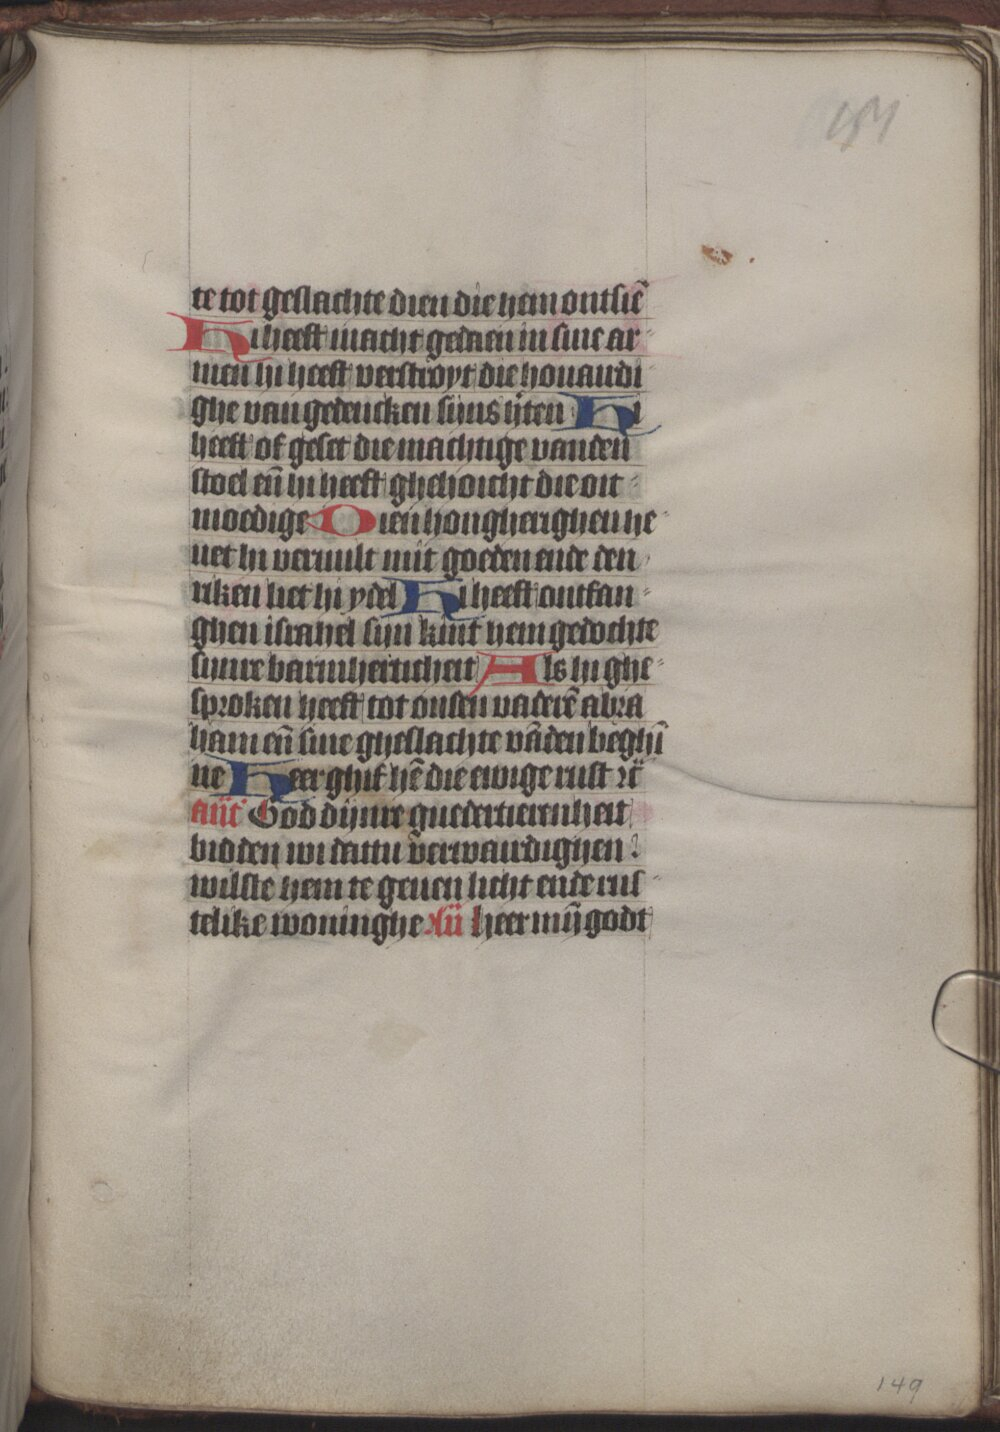 151
te tot geslachte dien die hem ontsiē
Hi heeft macht gedaen in sine ar-
men hi heeft verstroyt die houaardi
ghe van gedencken sijns h̄ten Hi
heeft of geset die machtige vanden
stoel en̄ hi heeft ghehoicht die oit-
moedige Dien hongherighen he-
uet hi veruult mit goeden ende den
riken liet hi ydel Hi heeft ontfan-
ghen israhel sijn kint hem gedochte
sijnre barmherticheit Als hi ghe-
sproken heeft tot onsen vaderē abra
ham en̄ sine gheslachte vā den beghī
ne Heer ghif hē die ewige rust
God dijnre guedertierenheit
bidden wi dattu verwaerdighen
wilste hem te geuen licht ende rus-
telike woninghe heer mijn godt
149